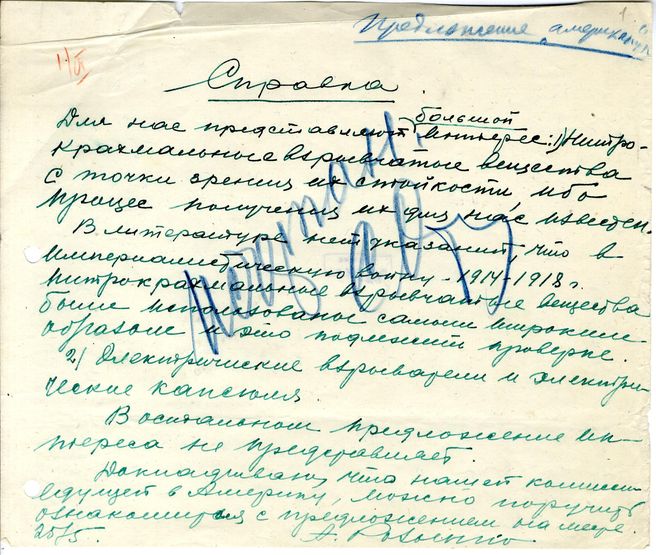 1.
Предложение американ
1/VI
Справка.
Для нас представляют большой интерес: 1) Нитро-
крахмальные взрывчатые вещества
с точки зрения их стойкости, ибо
процес получения их для нас известен.
В литературе нет указаний, что в
империалистическую войну - 1914-1918 г.
нитрокрахмальные взрывчатые вещества
были использованы самым широким
образом и это подлежит проверке.
2) Электрические взрыватели и электри-
ческие капсюля.
В остальном предложение ин-
тереса не представляет.
Докладываю, что нашей комиссии
едущей в Америку, можно поручить
ознакомиться с предложением на месте.
25/5.